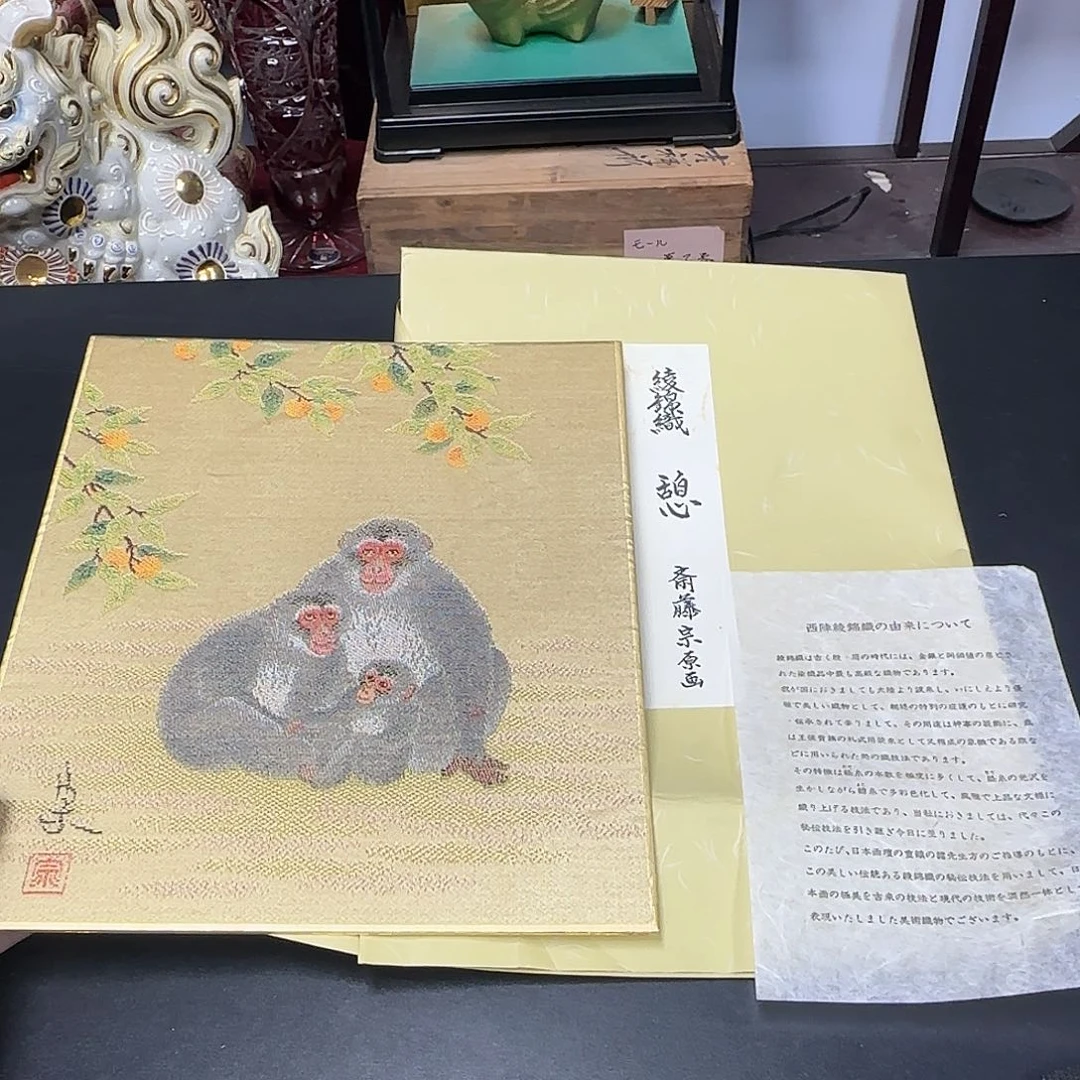 モール
綾錦織 憩 斎藤宗原画
宗
西陣綾錦織の由来について
綾錦織は古く殷・周の時代には、金銀と同価値の
れた染織品中最も高級な織物であります。
我が国におきましても大陸より渡来し、いにしえより優
雅で美しい織物として、朝廷の特別の庇護のもとに研究
・伝承されて参りまして、その用途は神事の装飾に、
は王侯貴族の礼式用装束として又相成の
どに用いられた処の織技法であります。
その特徴は経糸の本数を極度に多くして、絹糸の光沢を
生かしながら緯糸で多彩色化して、風雅で上品な文様に
織り上げる技法であり、当社におきましては、代々この
秘伝技法を引き継ぎ今日に至りました。
このたび、日本画壇の重鎮の諸先生方のご指導のもとに、
この美しい伝統ある綾錦織の秘伝技法を用いまして、日
本画の極美を古来の技法と現代の技術を渾然一体とし
表現いたしました美術織物でございます。